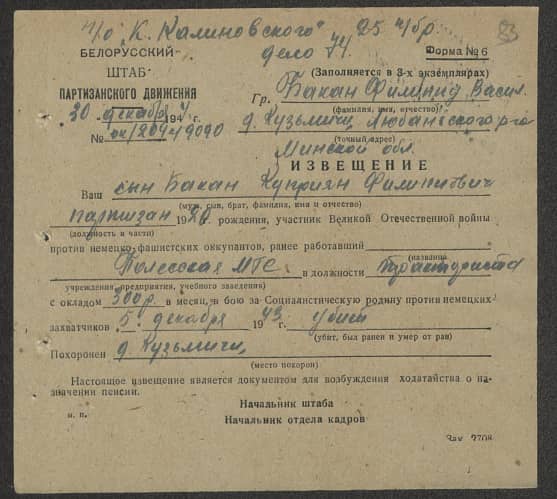 п/о "К. Калиновского" 25 п/бр.
дело 74
БЕЛОРУССКИЙ
ШТАБ
ПАРТИЗАНСКОГО ДВИЖЕНИЯ
30 декабря 194 г.
№
Форма № 6
(Заполняется в 3-х экземплярах)
Гр. Бакан Филипид Васил.
(фамилия, имя, отчество)
д. Кузьмичи Любанского р-на
(точный адрес)
Минской обл.
ИЗВЕЩЕНИЕ
Ваш сын Бакан Куприян Филипитович
(муж, сын, брат, фамилия, имя и отчество)
партизан 1920 рождения, участник Великой Отечественной войны
(должность в части)
против немецко-фашистских оккупантов, ранее работавший
(название
Полесская МТС в должности тракториста
учреждения, предприятия, учебного заведения)
с окладом 300 р. в месяц, в бою за Социалистическую родину против немецких
захватчиков 5 декабря 1943 г. убит
(убит, был ранен и умер от ран)
Похоронен д. Кузьмичи,
(место похорон)
Настоящее извещение является документом для возбуждения ходатайства о на-
значении пенсии.
Начальник штаба
м. п.
Начальник отдела кадров
Зак. 7708